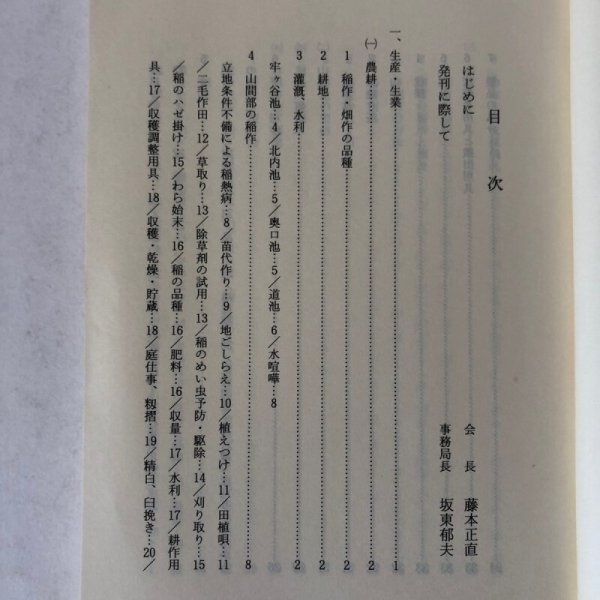 目次
はじめに 会長 藤本正直
発刊に際して 事務局長 坂東郁夫
一、生産・生業……………………1
㈠ 農耕……………………2
1 稲作・畑作の品種……………………2
2 耕地……………………2
3 灌漑、水利……………………2
牢ヶ谷池…4／北内池…5／奥口池…5／道池…6／水喧嘩…8
4 山間部の稲作……………………8
立地条件不備による稲熱病…8／苗代作り…9／地ごしらえ…10／植えつけ…11／田植唄…11
／二毛作田…12／草取り…13／除草剤の試用…13／稲のめい虫予防・駆除…14／刈り取り…15
／稲のハゼ掛け…15／わら始末…16／稲の品種…16／肥料…16／収量…17／水利…17／耕作用
具…17／収穫調整用具…18／収穫・乾燥・貯蔵…18／庭仕事、籾摺…19／精白、臼挽き…20／